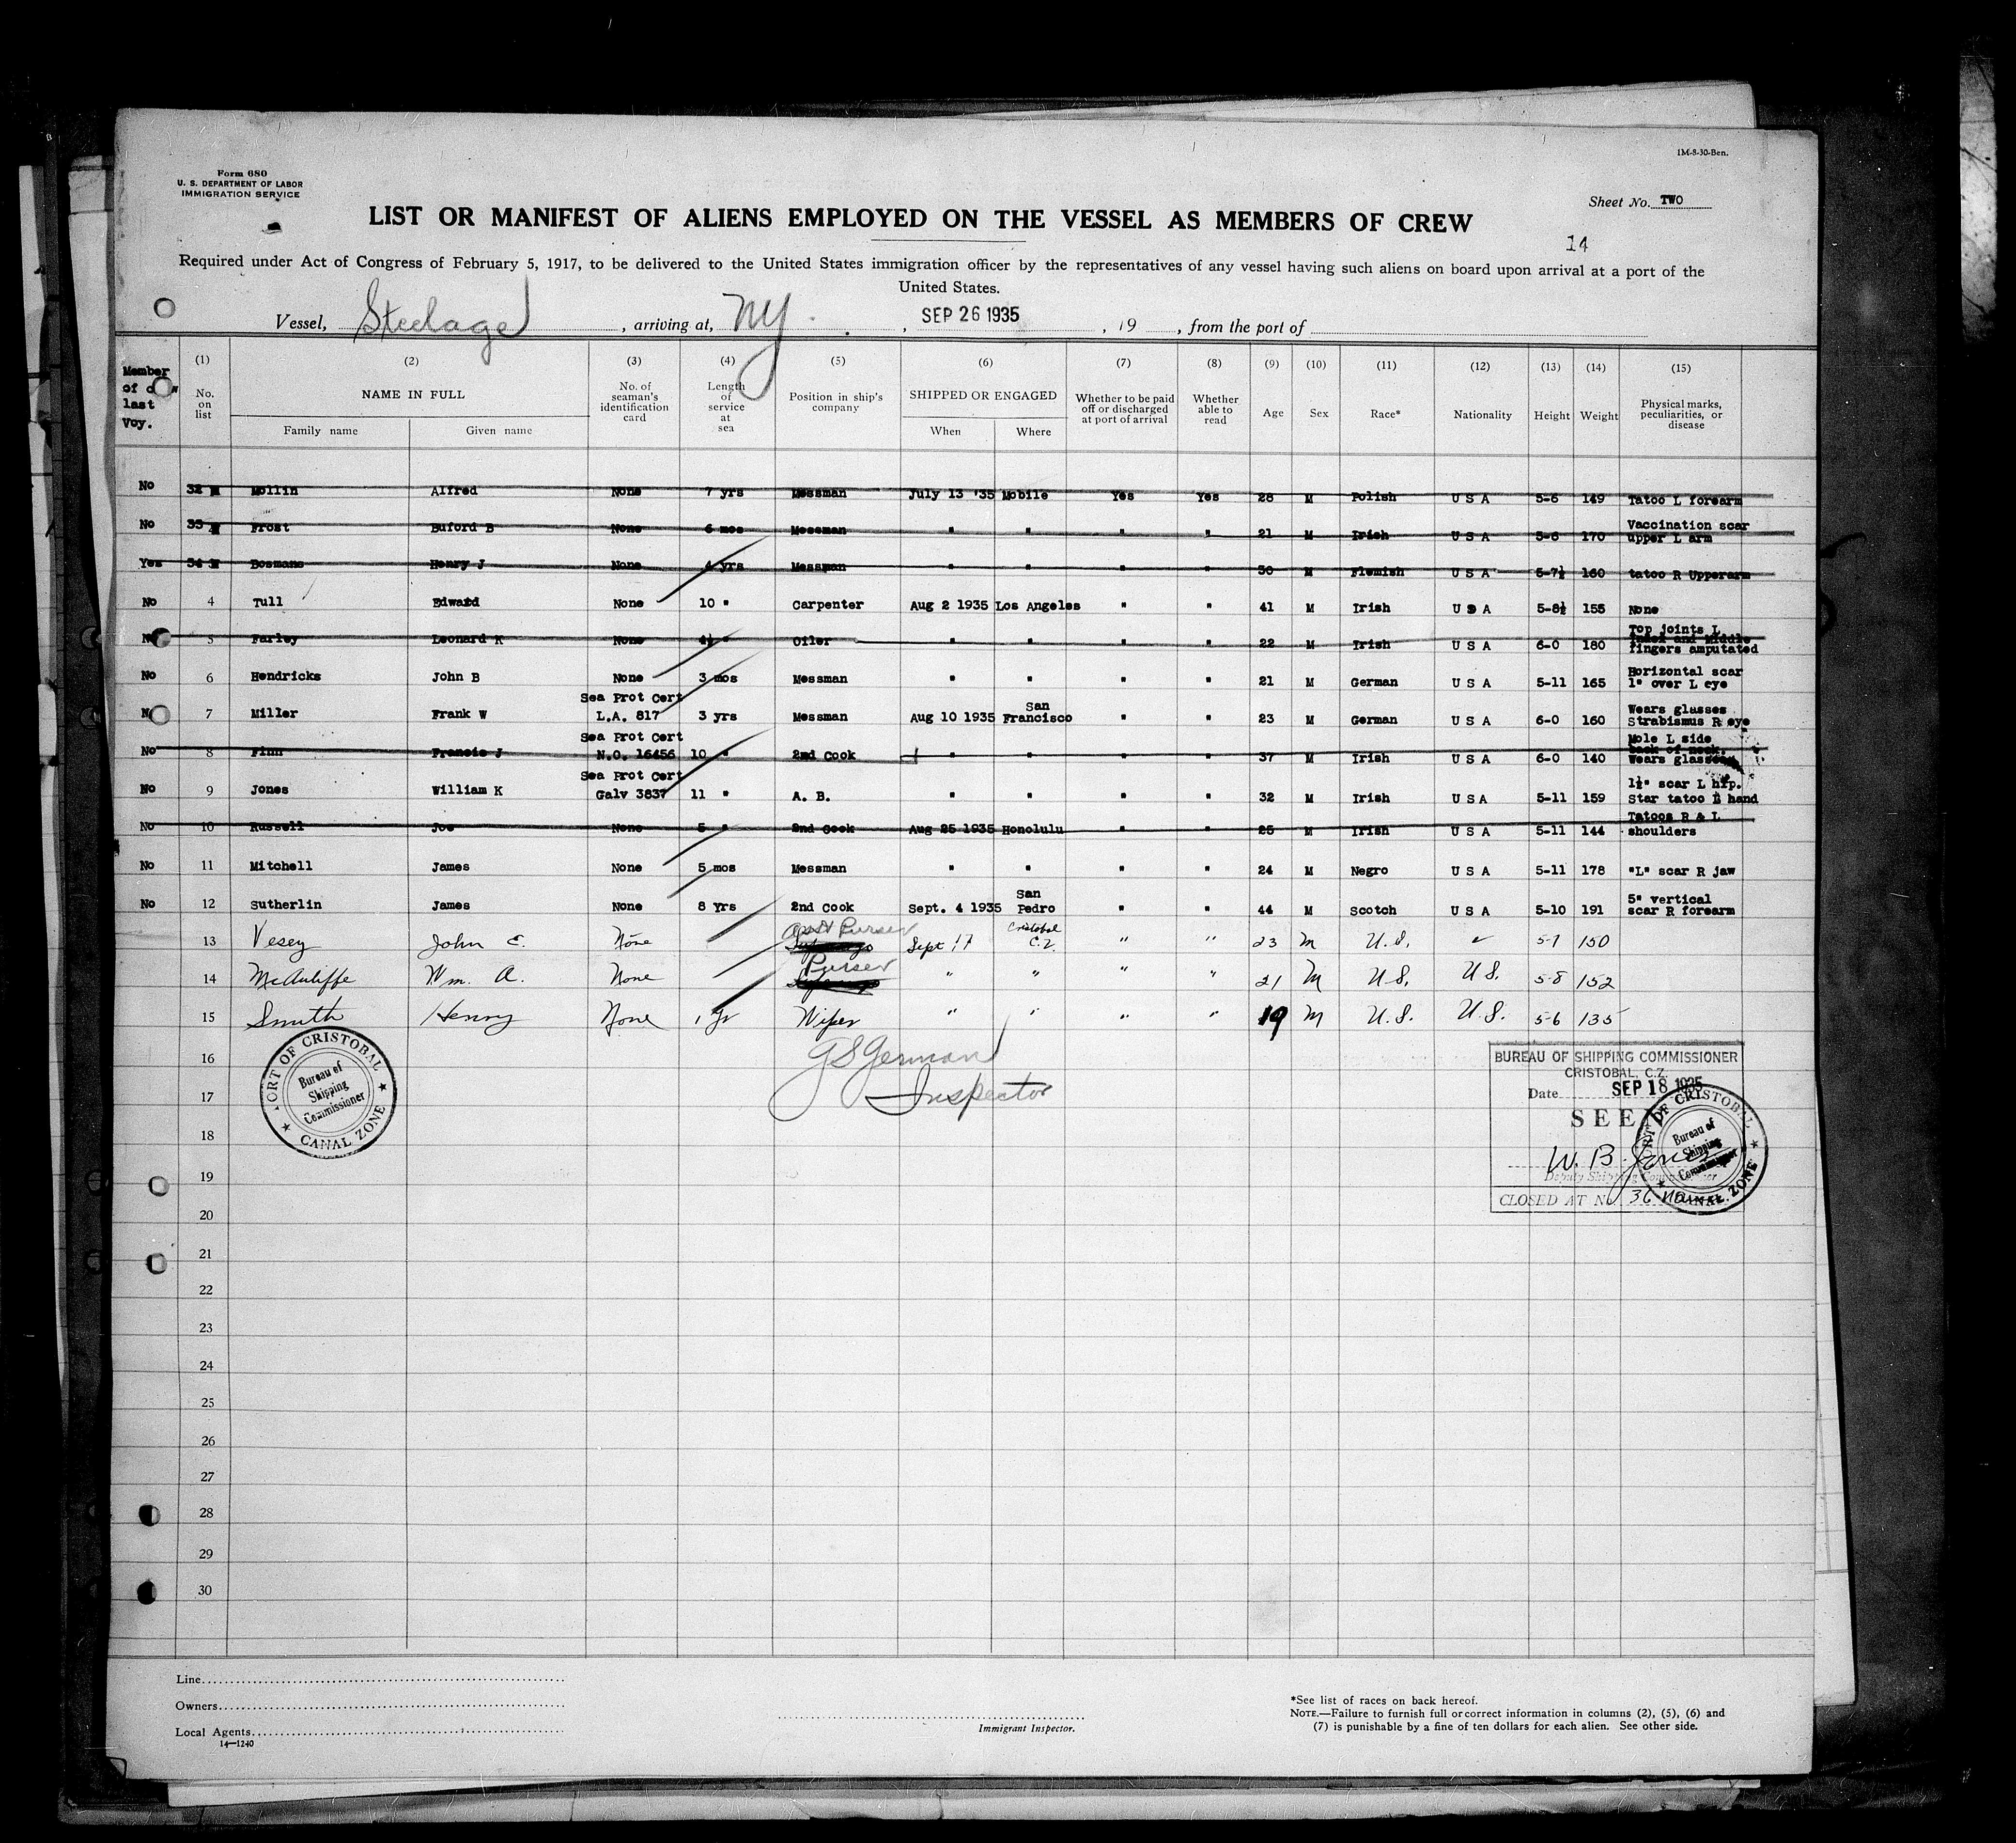 1M-8-30-Ben.
Form 680
U. S. DEPARTMENT OF LABOR
IMMIGRATION SERVICE
Sheet No. TWO
LIST OR MANIFEST OF ALIENS EMPLOYED ON THE VESSEL AS MEMBERS OF CREW
14
Required under Act of Congress of February 5, 1917, to be delivered to the United States immigration officer by the representatives of any vessel having such aliens on board upon arrival at a port of the
United States.
Vessel, Steelage, arriving at, NY., SEP 26 1935, 19 , from the port of
Member of crew last Voy. (1) No. on list (2) NAME IN FULL Family name Given name (3) No. of seaman's identification card (4) Length of service at sea (5) Position in ship's company (6) SHIPPED OR ENGAGED When Where (7) Whether to be paid off or discharged at port of arrival (8) Whether able to read (9) Age (10) Sex (11) Race* (12) Nationality (13) Height (14) Weight (15) Physical marks, peculiarities, or disease
No 32 Mollin Alfred None 7 yrs Messman July 13 '35 Mobile Yes Yes 28 M Polish U S A 5-6 149 Tatoo L forearm
No 33 Frost Buford B None 6 mos Messman " " " " 21 M Irish U S A 5-6 170 Vaccination scar upper L arm
Yes 34 Bosmans Henry J None 4 yrs Messman " " " " 30 M Flemish U S A 5-7½ 160 tatoo R Upperarm
No 4 Tull Edward None 10 " Carpenter Aug 2 1935 Los Angeles " " 41 M Irish U S A 5-8½ 155 None
No 5 Farley Leonard K None 4½ " Oiler " " " " 22 M Irish U S A 6-0 180 Top joints L Index and Middle fingers amputated
No 6 Hendricks John B None 3 mos Messman " " " " 21 M German U S A 5-11 165 Horizontal scar 1" over L eye
No 7 Miller Frank W Sea Prot Cert L.A. 817 3 yrs Messman Aug 10 1935 San Francisco " " 23 M German U S A 6-0 160 Wears glasses Strabismus R eye
No 8 Finn Francis J Sea Prot Cert N.O. 16456 10 " 2nd Cook " " " " 37 M Irish U S A 6-0 140 Mole L side back of neck. Wears glasses
No 9 Jones William K Sea Prot Cert Galv 3837 11 " A. B. " " " " 32 M Irish U S A 5-11 159 1½" scar L hip. Star tatoo L hand
No 10 Russell Joe None 5 " 2nd Cook Aug 25 1935 Honolulu " " 25 M Irish U S A 5-11 144 Tatoos R & L shoulders
No 11 Mitchell James None 5 mos Messman " " " " 24 M Negro U S A 5-11 178 "L" scar R jaw
No 12 Sutherlin James None 8 yrs 2nd Cook Sept. 4 1935 San Pedro " " 44 M Scotch U S A 5-10 191 5" vertical scar R forearm
13 Vesey John E. None Asst Purser Sept 17 Cristobal C.Z. " " 23 M U.S. 5-7 150
14 McAuliffe Wm. A. None Purser " " " " 21 M U.S. U.S. 5-8 152
15 Smith Henry None 1 yr Wiper " " " " 19 M U.S. U.S. 5-6 135
16
17
18
19
20
21
22
23
24
25
26
27
28
29
30
G S German
Inspector
PORT OF CRISTOBAL
Bureau of Shipping Commissioner
CANAL ZONE
BUREAU OF SHIPPING COMMISSIONER
CRISTOBAL, C.Z.
Date SEP 18 1935
SEE
W. B. Jones
Deputy Shipping Commissioner
CLOSED AT No 36
PORT OF CRISTOBAL
Bureau of Shipping Commissioner
CANAL ZONE
Line
Owners
Local Agents
14—1240
Immigrant Inspector.
*See list of races on back hereof.
NOTE.—Failure to furnish full or correct information in columns (2), (5), (6) and
(7) is punishable by a fine of ten dollars for each alien. See other side.